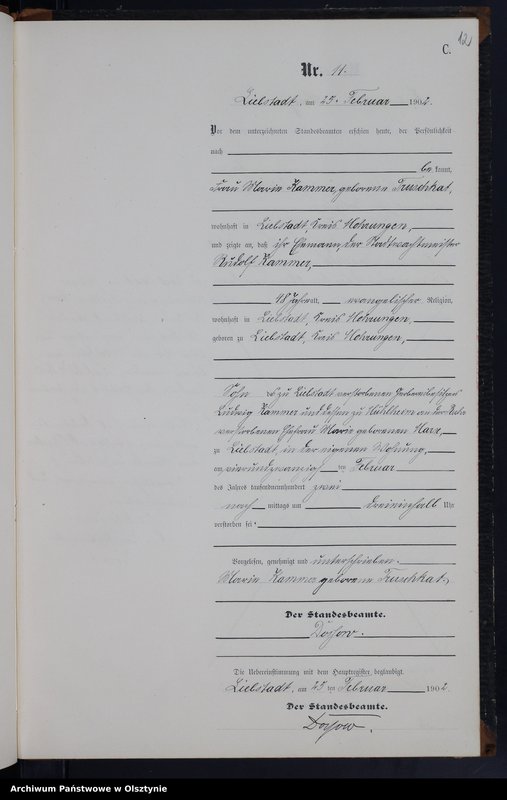 12
C.
Nr. 11.
Liebstadt, am 25. Februar 1902.
Vor dem unterzeichneten Standesbeamten erschien heute, der Persönlichkeit
nach
be kannt,
Frau Marie Kammer, geborene Truschkat,
wohnhaft in Liebstadt, Kreis Mohrungen,
und zeigte an, daß ihr Ehemann, der Stadtwachtmeister
Rudolf Kammer,
48 Jahre alt, evangelischer Religion,
wohnhaft in Liebstadt, Kreis Mohrungen,
geboren zu Liebstadt, Kreis Mohrungen,
Sohn des zu Liebstadt verstorbenen
Ludwig Kammer und dessen zu Mühlheim an der Ruhr
verstorbenen Ehefrau Marie geborenen
zu Liebstadt, in der eigenen Wohnung,
am vierundzwanzig ten Februar
des Jahres tausendneunhundert zwei
nach mittags um dreieinhalb Uhr
verstorben sei.
Vorgelesen, genehmigt und unterschrieben.
Marie Kammer geborene Truschkat.
Der Standesbeamte.
Die Uebereinstimmung mit dem Hauptregister beglaubigt.
Liebstadt, am 25 ten Februar 1902.
Der Standesbeamte.
Archiwum Państwowe w Olsztynie